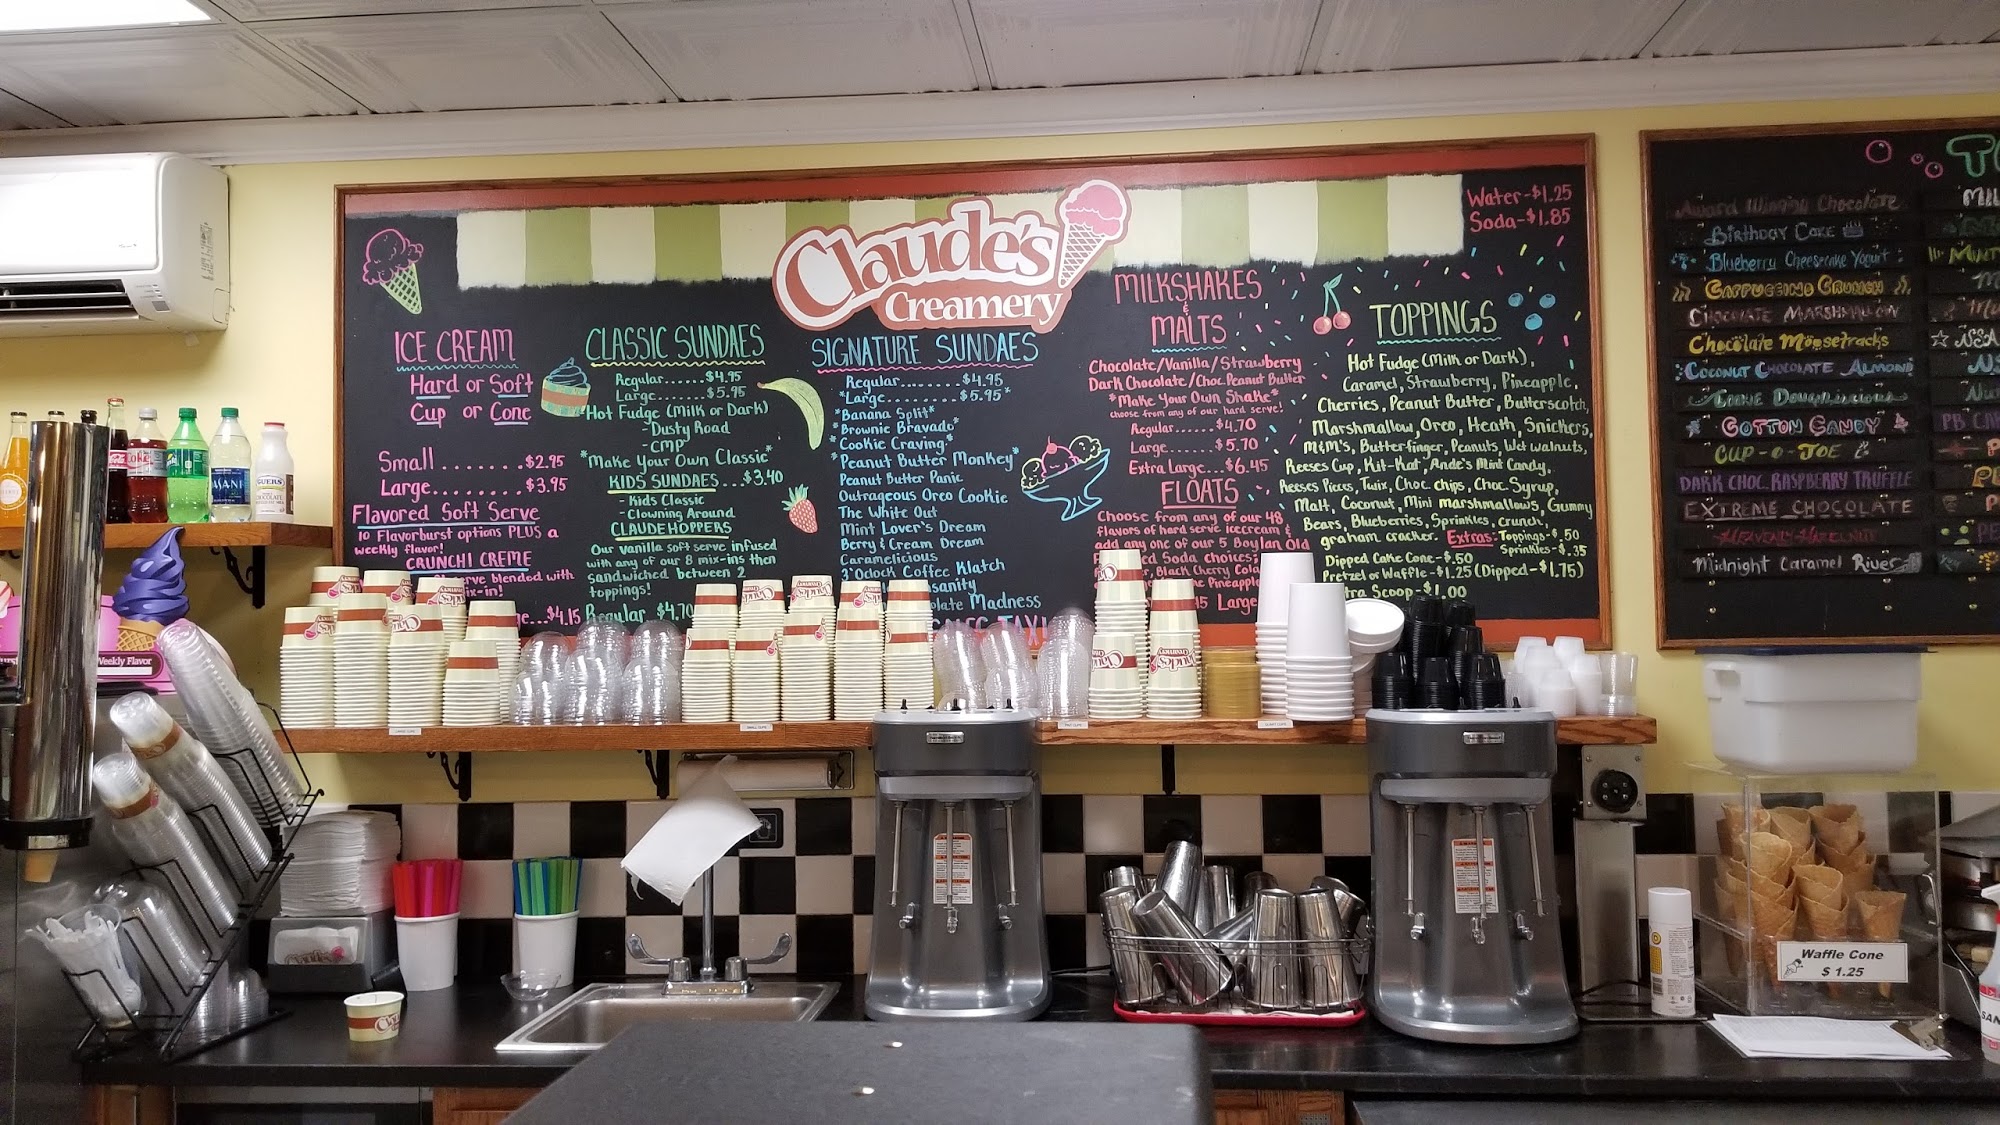 Claude's
Creamery
Water-$1.25
Soda-$1.85
ICE CREAM
Hard or Soft
Cup or Cone
Small ........$2.95
Large........$3.95
Flavored Soft Serve
10 Flavorburst options PLUS a
weekly flavor!
CRUNCHI CREME
erve blended with
ix-in!
ge...$4.15
CLASSIC SUNDAES
Regular......$4.95
Large........$5.95
Hot Fudge (Milk or Dark)
-Dusty Road
-CMP
*Make Your Own Classic*
KIDS SUNDAES...$3.40
-Kids Classic
-Clowning Around
CLAUDEHOPPERS
Our vanilla soft serve infused
with any of our 8 mix-ins then
sandwiched between 2
toppings!
Regular $4.70
SIGNATURE SUNDAES
Regular........$4.95
*Large.........$5.95*
*Banana Split*
*Brownie Bravado*
*Cookie Craving*
*Peanut Butter Monkey*
Peanut Butter Panic
Outrageous Oreo Cookie
The White Out
Mint Lover's Dream
Berry & Cream Dream
Caramelicious
3'Oclock Coffee Klatch
sanity
olate Madness
MILKSHAKES
&
MALTS
Chocolate/Vanilla/Strawberry
Dark Chocolate/Choc. Peanut Butter
*Make Your Own Shake*
choose from any of our hard serve!
Regular.....$4.70
Large.......$5.70
Extra Large...$6.45
FLOATS
Choose from any of our 48
flavors of hard serve icecream &
add any one of our 5 Boylan Old
ed Soda choices:
Black Cherry Cola
Pineapple
45 Large
TOPPINGS
Hot Fudge (Milk or Dark),
Caramel, Strawberry, Pineapple,
Cherries, Peanut Butter, Butterscotch,
Marshmallow, Oreo, Heath, Snickers,
M&M's, Butterfinger, Peanuts, Wet walnuts,
Reeses Cup, Kit-Kat, Ande's Mint Candy,
Reeses Pieces, Twix, Choc chips, Choc. Syrup,
Malt, Coconut, Mini marshmallows, Gummy
Bears, Blueberries, Sprinkles, crunch,
graham cracker. Extras: Toppings-$.50
Sprinkles-$.35
Dipped Cake Cone-$.50
Pretzel or Waffle-$1.25 (Dipped-$1.75)
tra Scoop-$1.00
Award Winning Chocolate
Birthday Cake
Blueberry Cheesecake Yogurt
Cappuccino Crunch
Chocolate Marshmallow
Chocolate Moosetracks
Coconut Chocolate Almond
Cookie Doughlicious
Cotton Candy
CUP-O-JOE
DARK CHOC. RASPBERRY TRUFFLE
EXTREME CHOCOLATE
Heavenly Hazelnut
Midnight Caramel River
Weekly Flavor
Waffle Cone
$ 1.25